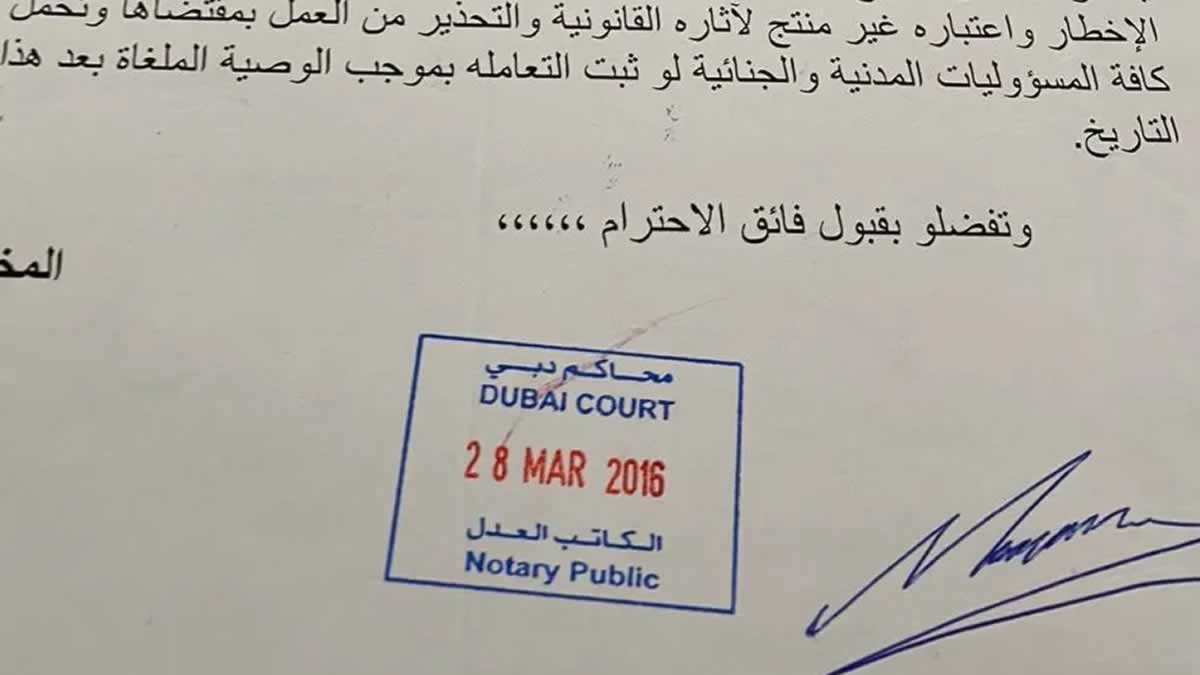 الإخطار واعتباره غير منتج لآثاره القانونية والتحذير من العمل بمقتضاها وتحمل
كافة المسؤوليات المدنية والجنائية لو ثبت التعامله بموجب الوصية الملغاة بعد هذا
التاريخ.
وتفضلو بقبول فائق الاحترام ،،،،،،
محاكم دبي
DUBAI COURT
28 MAR 2016
الكاتب العدل
Notary Public